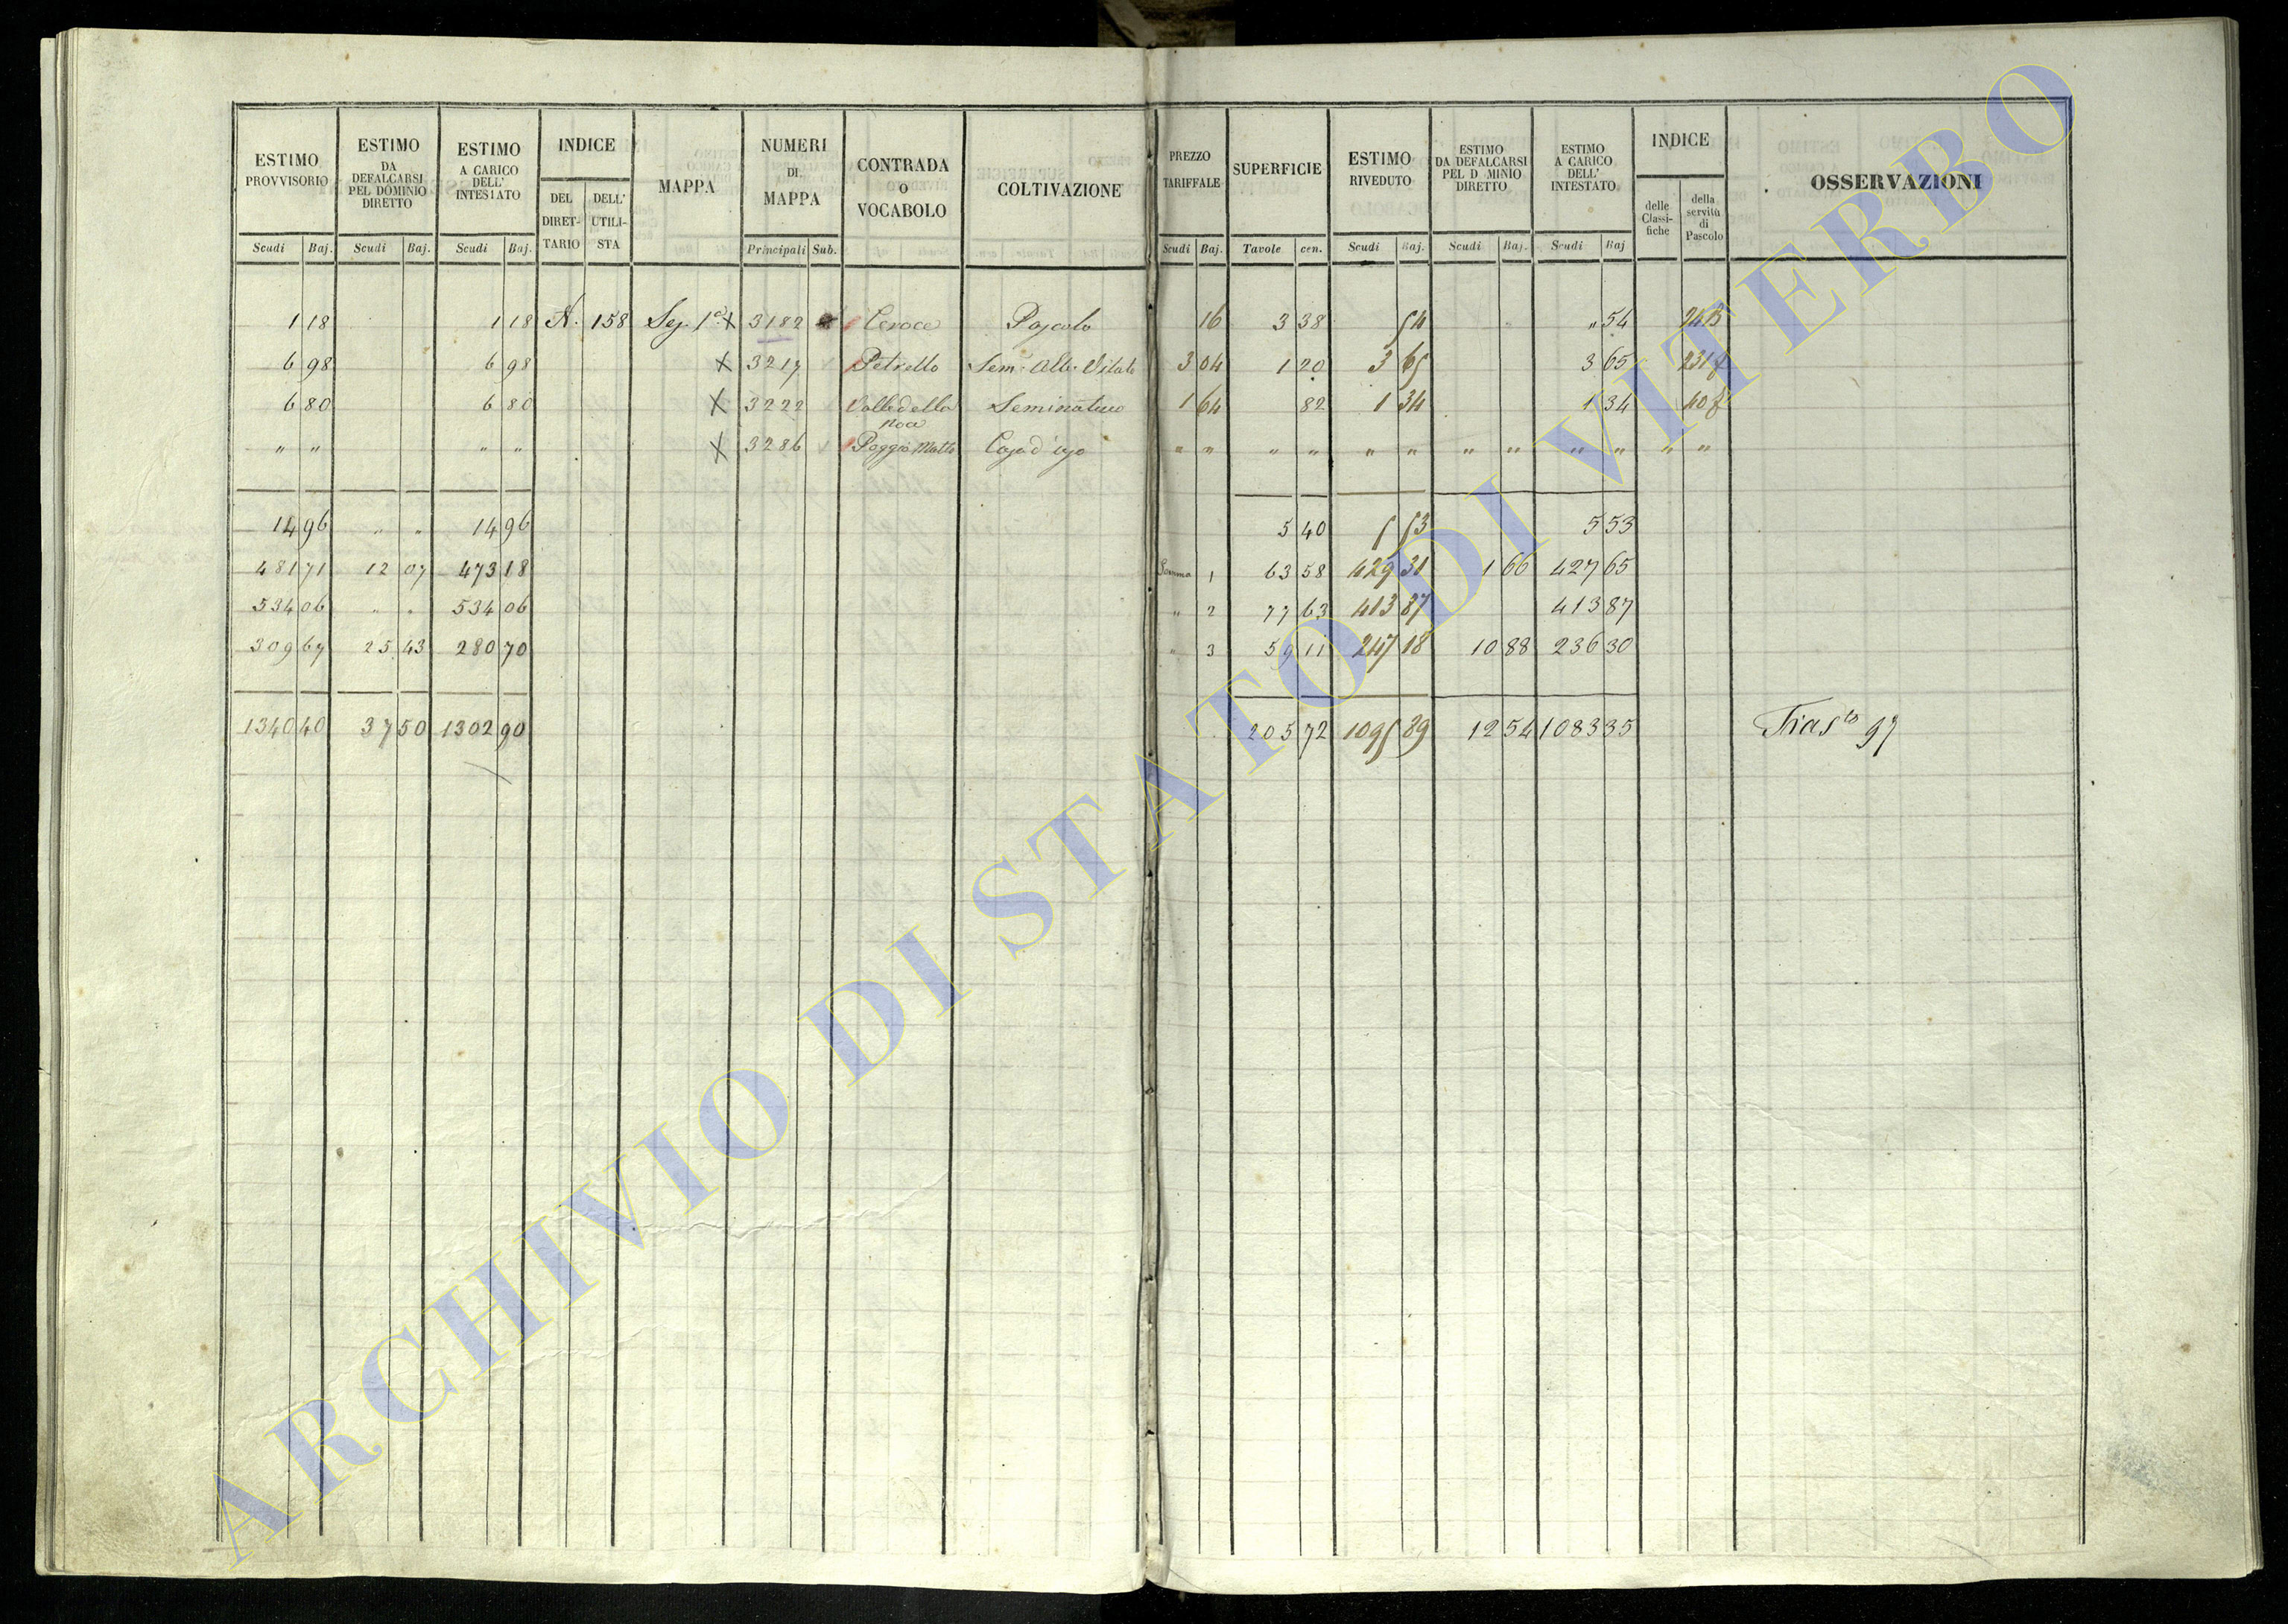 ESTIMO PROVVISORIO | ESTIMO DA DEFALCARSI PEL DOMINIO DIRETTO | ESTIMO A CARICO DELL' INTESTATO | INDICE | MAPPA | NUMERI DI MAPPA | CONTRADA O VOCABOLO | COLTIVAZIONE | PREZZO TARIFFALE | SUPERFICIE | ESTIMO RIVEDUTO | ESTIMO DA DEFALCARSI PEL D MINIO DIRETTO | ESTIMO A CARICO DELL' INTESTATO | INDICE | OSSERVAZIONI
DEL DIRET-TARIO | DELL' UTILI-STA | delle Classi-fiche | della servitù di Pascolo
Scudi | Baj. | Scudi | Baj. | Scudi | Baj. | Principali | Sub. | Scudi | Baj. | Tavole | cen. | Scudi | Baj. | Scudi | Baj. | Scudi | Baj
1 18 | 1 18 | A. | 158 | Sez. 1a X | 3182 | Ceroce | Pascolo | 16 | 3 38 | 54 | " 54 | 24B
6 98 | 6 98 | X | 3217 | Petrello | Sem: Alb: Vitato | 3 04 | 1 20 | 3 65 | 3 65 | 231
6 80 | 6 80 | X | 3222 | Valle della noce | Seminativo | 1 64 | 82 | 1 34 | 1 34 | 40
" " | " " | X | 3286 | Poggio Matto | Casa d'uso | " " | " " | " " | " " | " " | " "
14 96 | " " | 14 96 | 5 40 | 5 53 | 5 53
481 71 | 12 07 | 473 18 | Somma 1 | 63 58 | 429 31 | 1 66 | 427 65
534 06 | " " | 534 06 | " 2 | 77 63 | 413 87 | 413 87
309 67 | 25 43 | 280 70 | " 3 | 59 11 | 247 18 | 10 88 | 236 30
1340 40 | 37 50 | 1302 90 | 205 72 | 1095 89 | 12 54 | 1083 35 | Tras to 97
ARCHIVIO DI STATO DI VITERBO